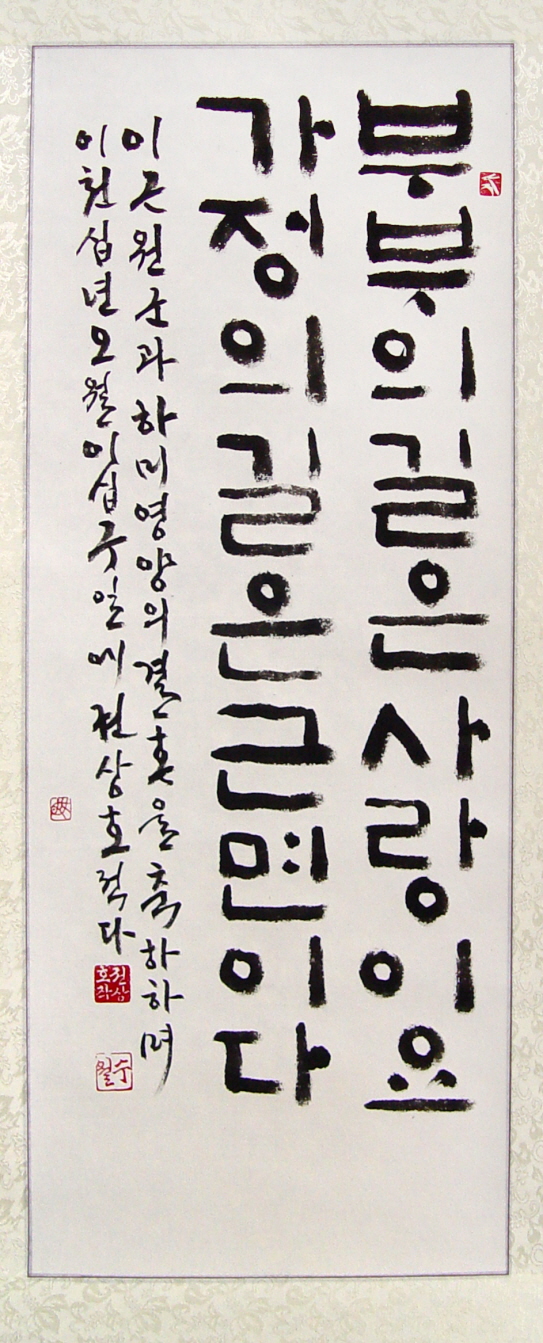 부부의길은사랑이요
가정의길은근면이다
이근원군과하미영양의결혼을축하하며
이천십년오월이십구일에전상호적다
전상호작
수월